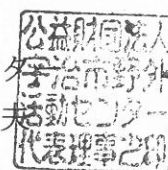 公益財団法人
宇治市野外
活動センター
代表理事之印
夫